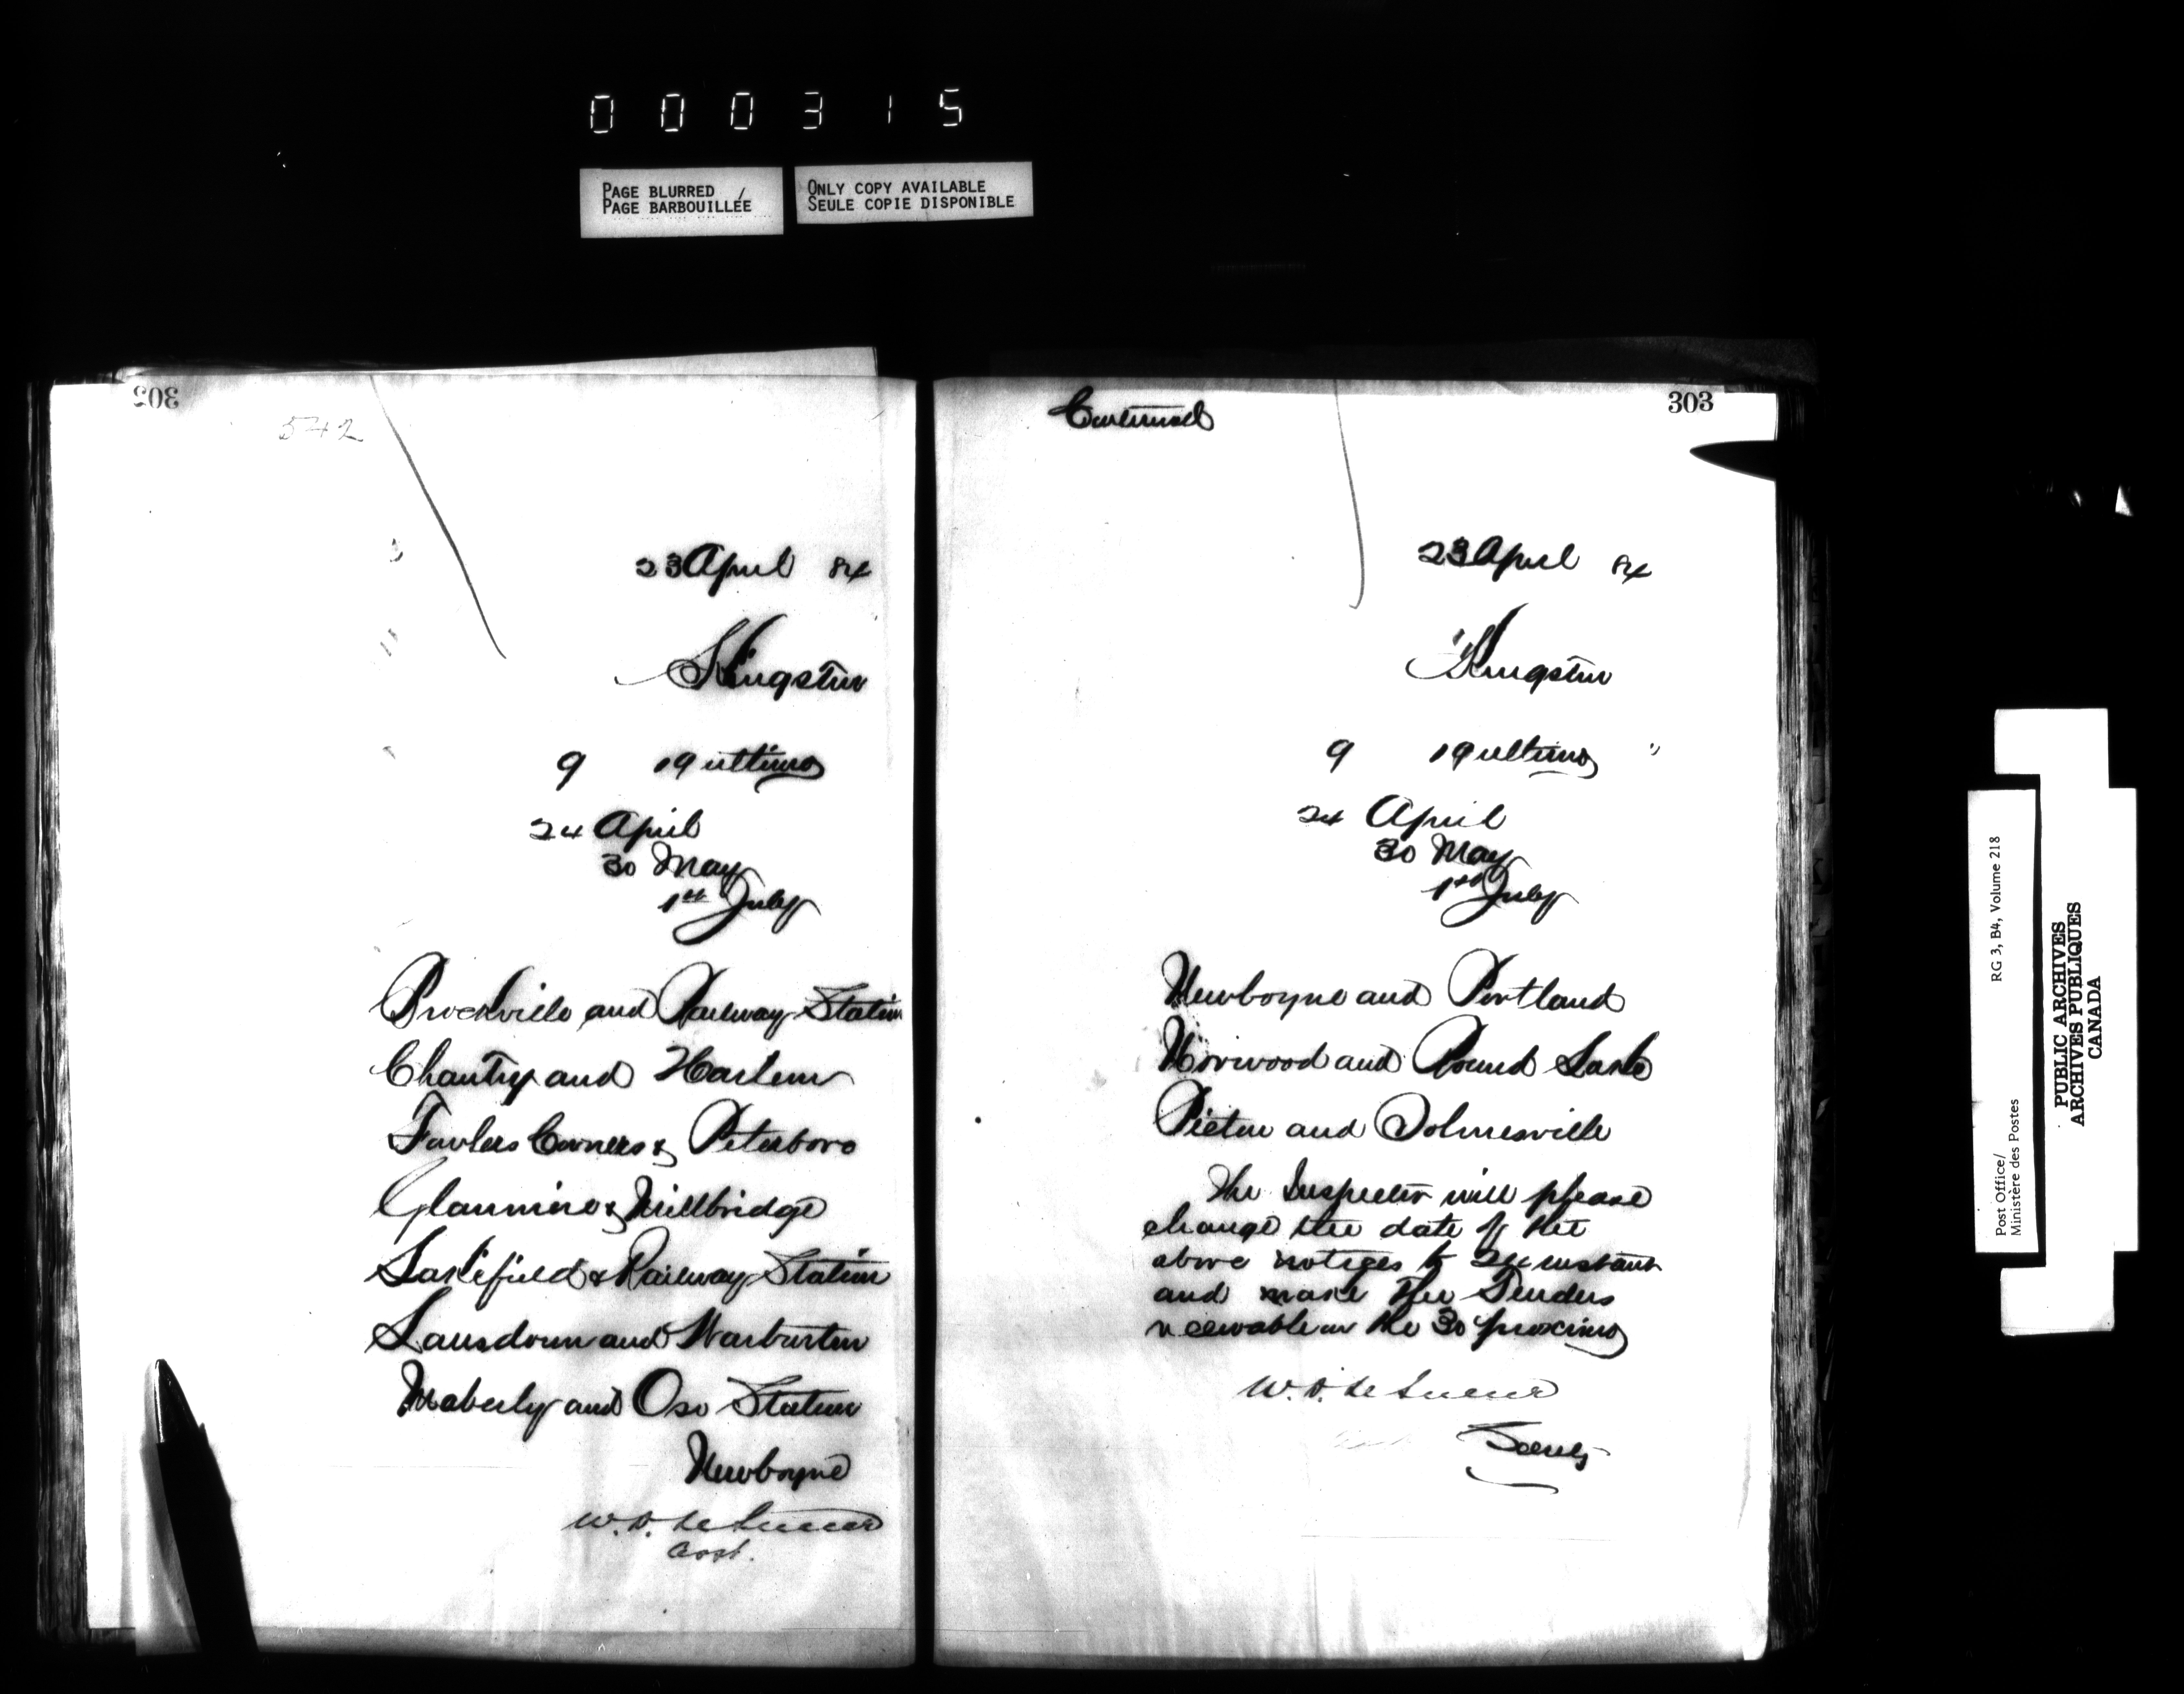 000315
PAGE BLURRED /
PAGE BARBOUILLÉE
ONLY COPY AVAILABLE
SEULE COPIE DISPONIBLE
302
542
23 April 84
Kingston
9 19 ultimo
24 April
30 May
1st July
Brockville and Railway Station
Chantry and Harlem
Fowlers Corners & Peterboro
Glanmire & Millbridge
Lakefield & Railway Station
Lansdown and Warburton
Maberly and Oso Station
Newboyne
W. D. Le Sueur
303
Continued
23 April 84
Kingston
9 19 ultimo "
24 April
30 May
1st July
Newboyne and Portland
Norwood and Round Lake
Picton and Solmesville
The Inspector will please
change the date of the
above notices to 24 instant
and make the Tenders
receivable on the 30 proximo
W. D. Le Sueur
Secrety
Post Office/
Ministère des Postes
RG 3, B4, Volume 218
PUBLIC ARCHIVES
ARCHIVES PUBLIQUES
CANADA